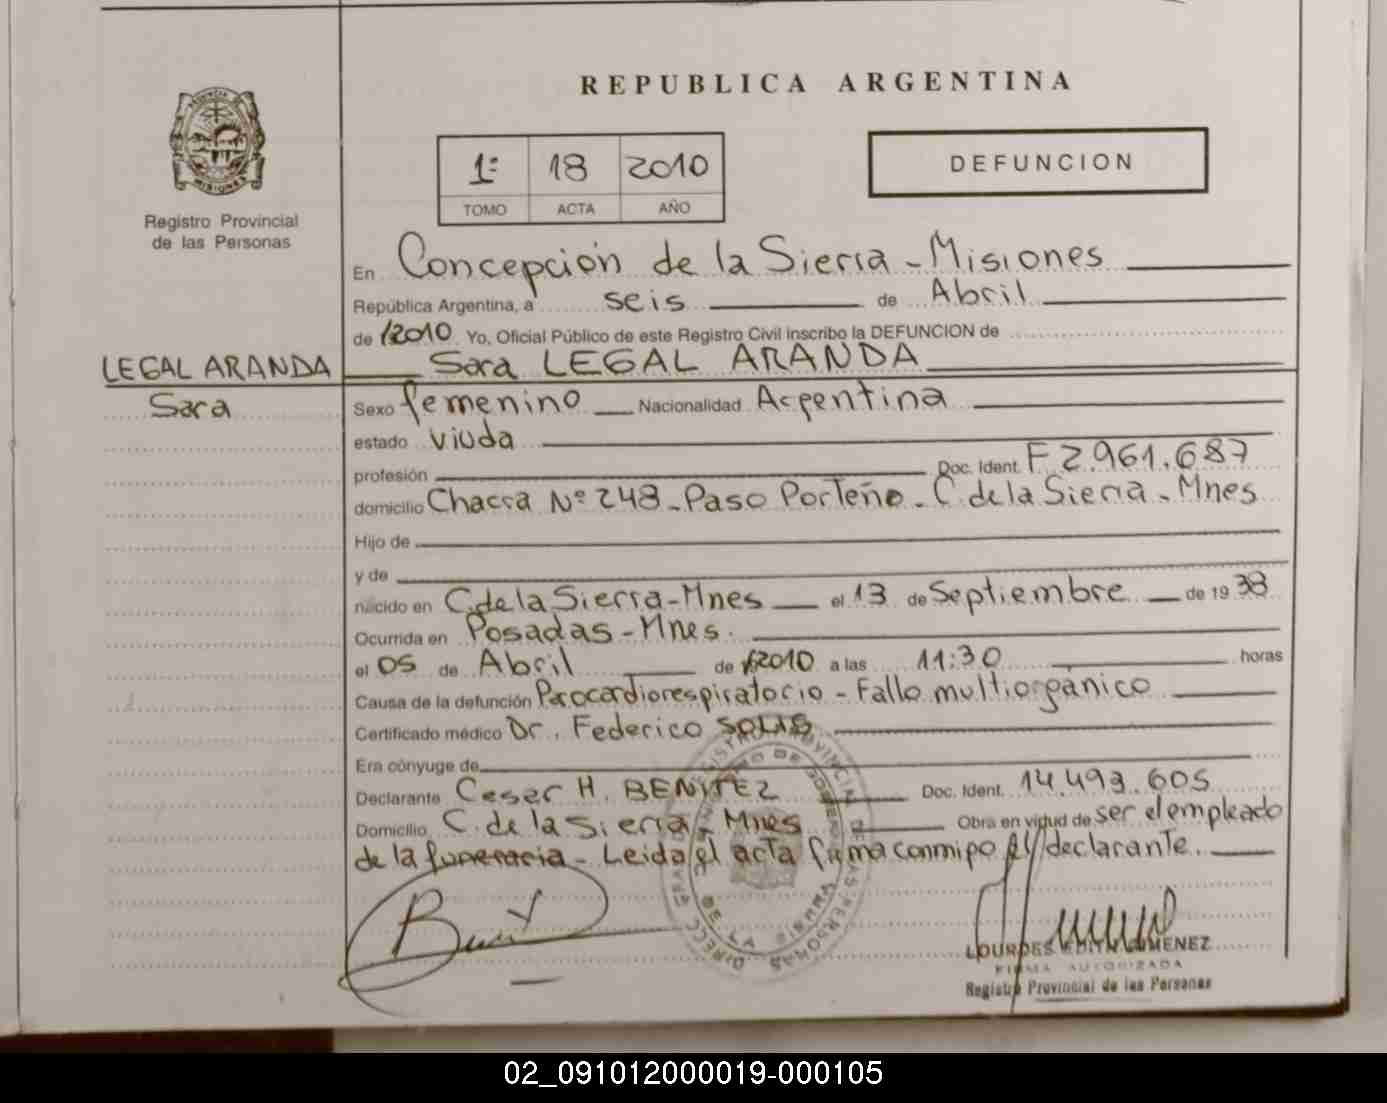 REPUBLICA ARGENTINA
PROVINCIA DE
MISIONES
Registro Provincial
de las Personas
1º 18 2010
TOMO ACTA AÑO
DEFUNCION
En Concepción de la Sierra - Misiones
República Argentina, a seis de Abril
de 2010 Yo, Oficial Público de este Registro Civil inscribo la DEFUNCION de
LEGAL ARANDA Sara LEGAL ARANDA
Sara Sexo femenino Nacionalidad Argentina
estado viuda
profesión Doc. Ident. F 2.961.687
domicilio Chacra Nº 248 - Paso Porteño - C. de la Sierra - Mnes
Hijo de
y de
nacido en C. de la Sierra - Mnes el 13 de Septiembre de 19 38
Ocurrida en Posadas - Mnes.
el 05 de Abril de 2010 a las 11:30 horas
Causa de la defunción Parocardiorespiratorio - Fallo multiorganico
Certificado médico Dr. Federico SOLIS
Era cónyuge de
Declarante Ceser H. BENITEZ Doc. Ident. 14.493.605
Domicilio C. de la Sierra - Mnes Obra en virtud de ser el empleado
de la funeraria - Leida el acta firma conmigo el declarante.
LOURDES EDITH GIMENEZ
FIRMA AUTORIZADA
Registro Provincial de las Personas
02_091012000019-000105